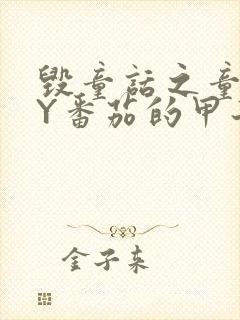 毁童话之童
Y番茄的甲
金子来